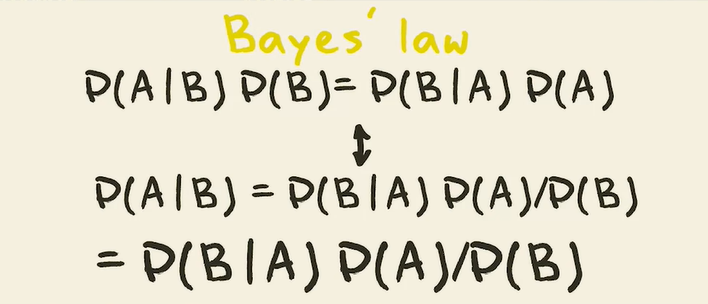 Bayes' law
P(A|B) P(B)= P(B|A) P(A)
↕
P(A|B) = P(B|A) P(A)/P(B)
= P(B|A) P(A)/P(B)